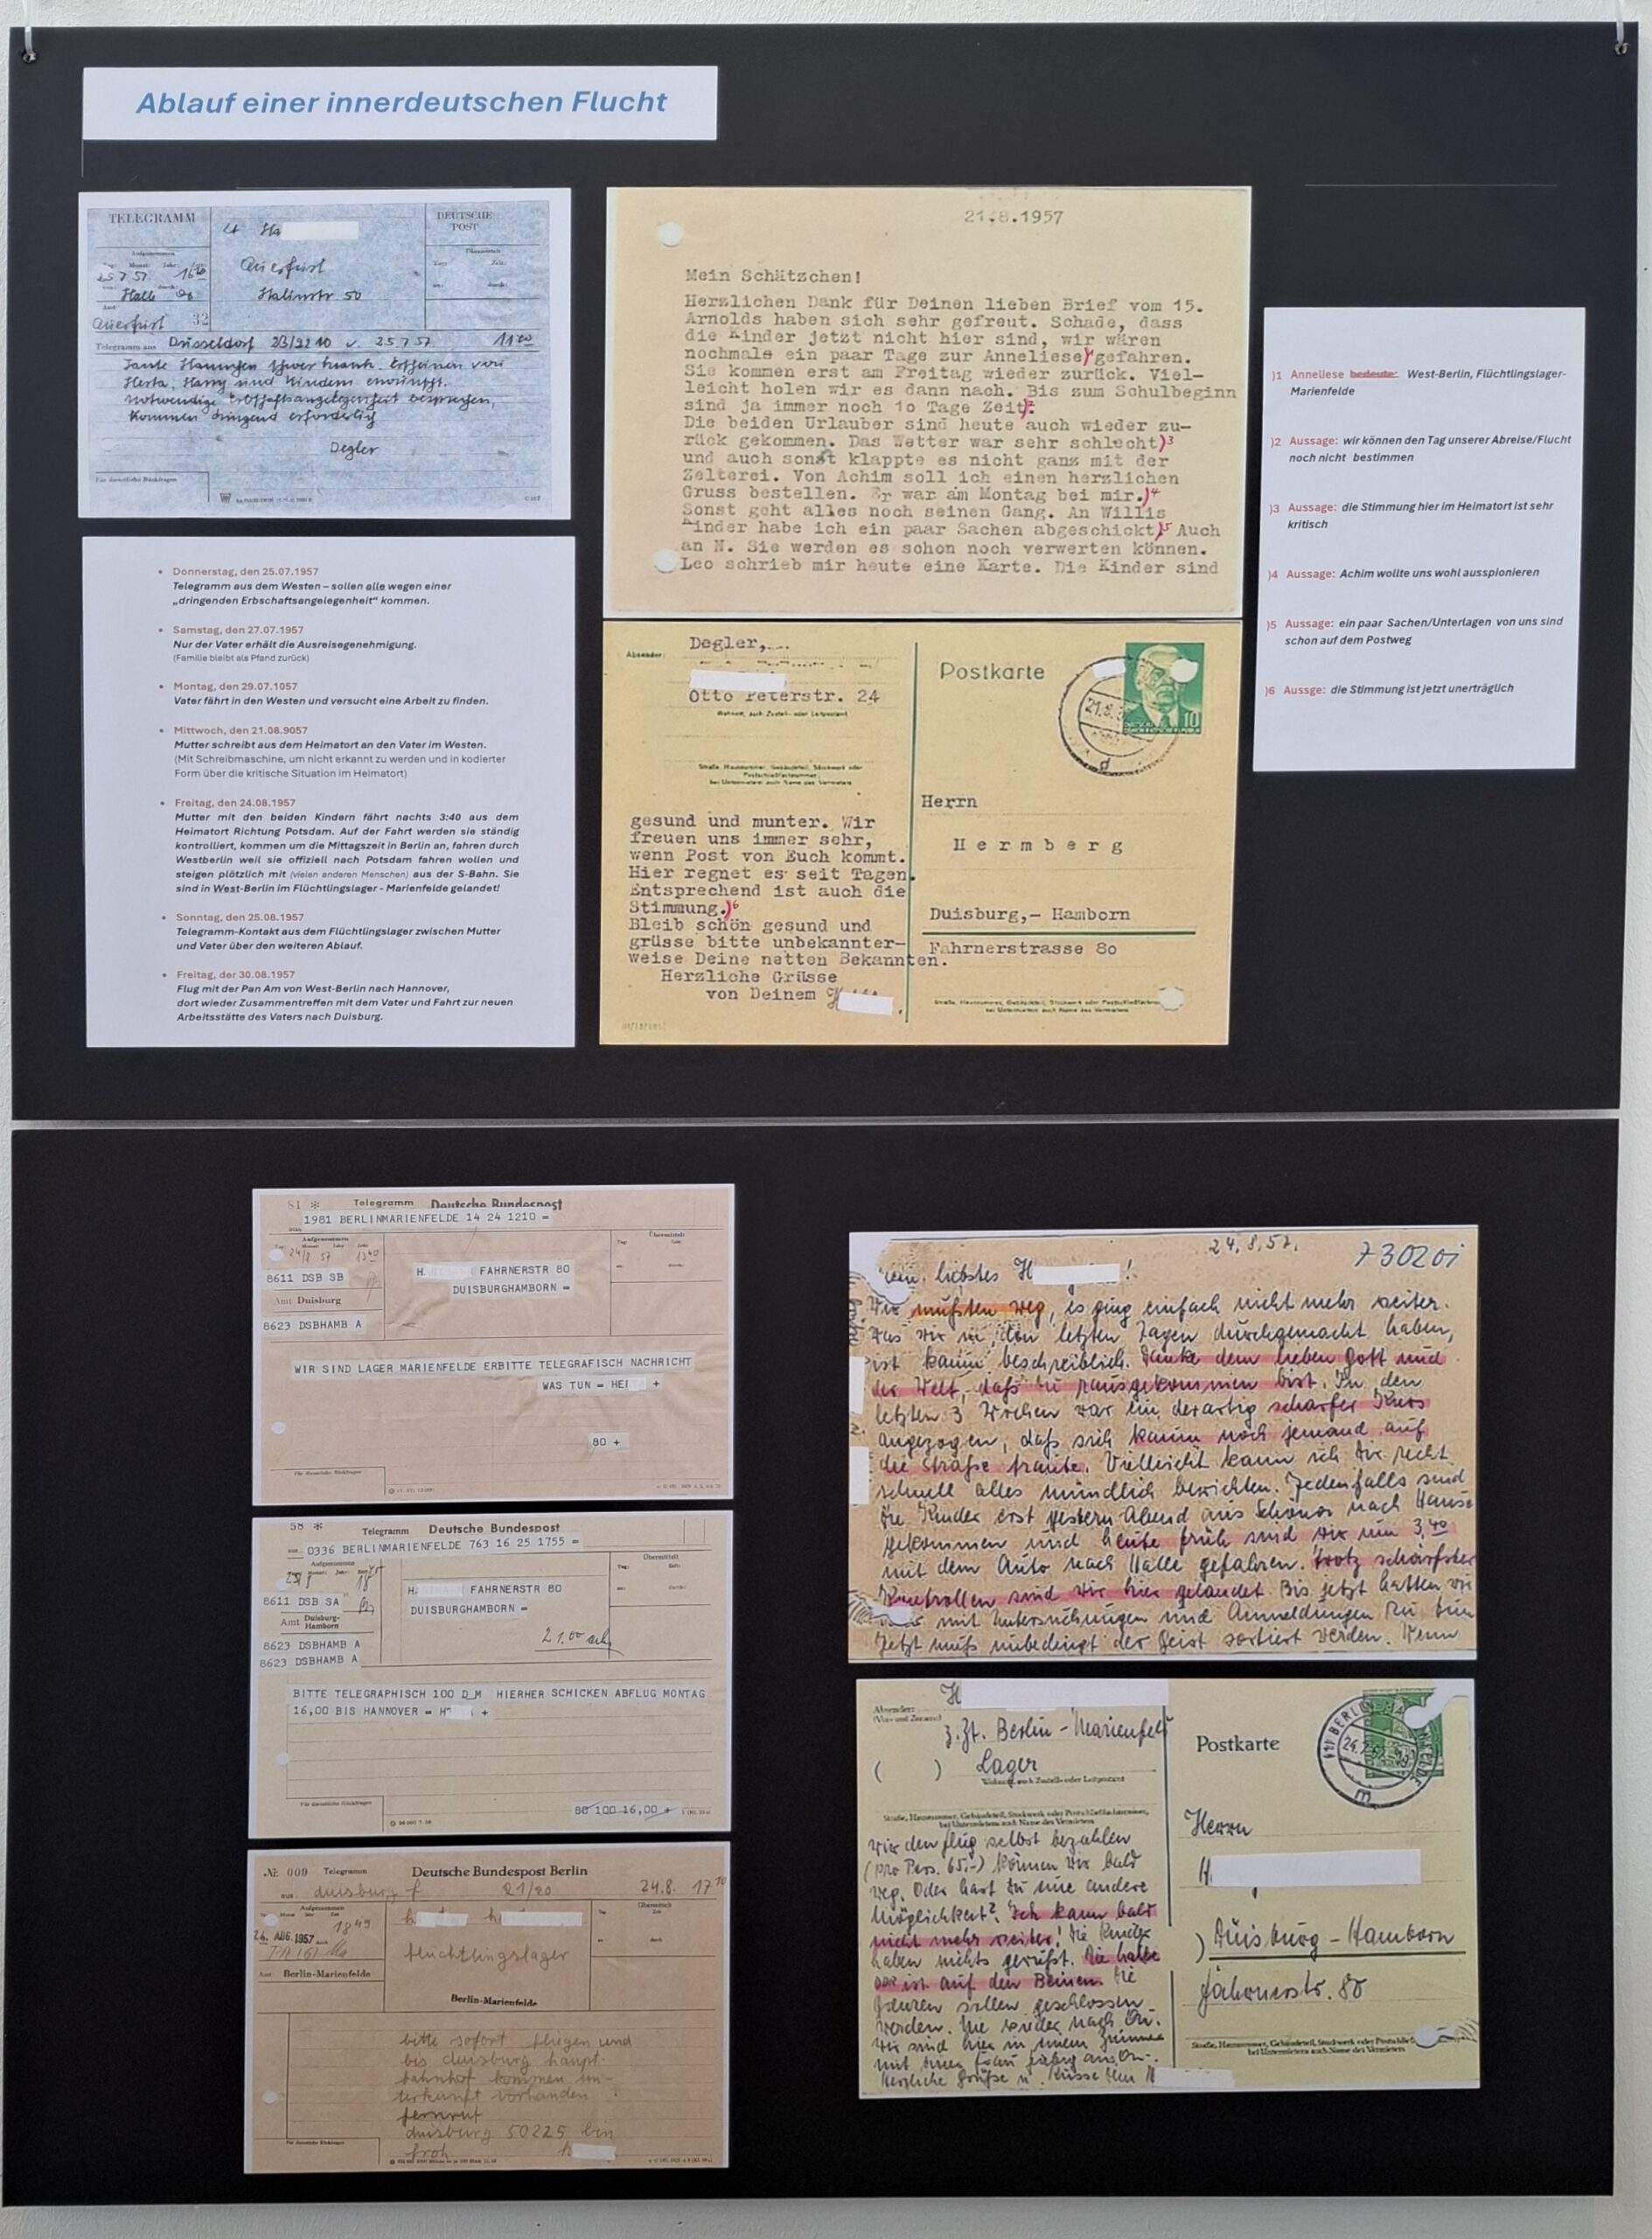 Ablauf einer innerdeutschen Flucht
TELEGRAMM
DEUTSCHE
POST
Lt Ha
Querfurt
Stalinstr 50
25 7 57
Halle
Querfurt 32
Telegramm aus Düsseldorf 25.7.57 11
Tante Hannchen schwer krank. Erscheinen von
Herta, Harry und Kindern erwünscht.
Notwendige Erbschaftsangelegenheit besprechen,
Kommen dringend erforderlich
Degler
Für dienstliche Rückfragen
• Donnerstag, den 25.07.1957
Telegramm aus dem Westen – sollen alle wegen einer
„dringenden Erbschaftsangelegenheit“ kommen.
• Samstag, den 27.07.1957
Nur der Vater erhält die Ausreisegenehmigung.
(Familie bleibt als Pfand zurück)
• Montag, den 29.07.1057
Vater fährt in den Westen und versucht eine Arbeit zu finden.
• Mittwoch, den 21.08.9057
Mutter schreibt aus dem Heimatort an den Vater im Westen.
(Mit Schreibmaschine, um nicht erkannt zu werden und in kodierter
Form über die kritische Situation im Heimatort)
• Freitag, den 24.08.1957
Mutter mit den beiden Kindern fährt nachts 3:40 aus dem
Heimatort Richtung Potsdam. Auf der Fahrt werden sie ständig
kontrolliert, kommen um die Mittagszeit in Berlin an, fahren durch
Westberlin weil sie offiziell nach Potsdam fahren wollen und
steigen plötzlich mit (vielen anderen Menschen) aus der S-Bahn. Sie
sind in West-Berlin im Flüchtlingslager - Marienfelde gelandet!
• Sonntag, den 25.08.1957
Telegramm-Kontakt aus dem Flüchtlingslager zwischen Mutter
und Vater über den weiteren Ablauf.
• Freitag, der 30.08.1957
Flug mit der Pan Am von West-Berlin nach Hannover,
dort wieder Zusammentreffen mit dem Vater und Fahrt zur neuen
Arbeitsstätte des Vaters nach Duisburg.
21.8.1957
Mein Schätzchen!
Herzlichen Dank für Deinen lieben Brief vom 15.
Arnolds haben sich sehr gefreut. Schade, dass
die Kinder jetzt nicht hier sind, wir wären
nochmals ein paar Tage zur Anneliese)¹ gefahren.
Sie kommen erst am Freitag wieder zurück. Viel-
leicht holen wir es dann nach. Bis zum Schulbeginn
sind ja immer noch 1o Tage Zeit)².
Die beiden Urlauber sind heute auch wieder zu-
rück gekommen. Das Wetter war sehr schlecht)³
und auch sonst klappte es nicht ganz mit der
Zelterei. Von Achim soll ich einen herzlichen
Gruss bestellen. Er war am Montag bei mir.)⁴
Sonst geht alles noch seinen Gang. An Willis
Kinder habe ich ein paar Sachen abgeschickt)⁵ Auch
an N. Sie werden es schon noch verwerten können.
Leo schrieb mir heute eine Karte. Die Kinder sind
Absender: Degler,
Otto Peterstr. 24
Wohnort, auch Zustell- oder Leitpostamt
Straße, Hausnummer, Gebäudeteil, Stockwerk oder
Postschließfachnummer;
bei Untermietern auch Name des Vermieters
gesund und munter. Wir
freuen uns immer sehr,
wenn Post von Euch kommt.
Hier regnet es seit Tagen.
Entsprechend ist auch die
Stimmung.)⁶
Bleib schön gesund und
grüsse bitte unbekannter-
weise Deine netten Bekannten.
Herzliche Grüsse
von Deinem
Postkarte
10
Herrn
H e r m b e r g
Duisburg,- Hamborn
Fahrnerstrasse 8o
Straße, Hausnummer, Gebäudeteil, Stockwerk oder Postschließfachnummer
bei Untermietern auch Name des Vermieters
)1 Anneliese bedeute: West-Berlin, Flüchtlingslager-
Marienfelde
)2 Aussage: wir können den Tag unserer Abreise/Flucht
noch nicht bestimmen
)3 Aussage: die Stimmung hier im Heimatort ist sehr
kritisch
)4 Aussage: Achim wollte uns wohl ausspionieren
)5 Aussage: ein paar Sachen/Unterlagen von uns sind
schon auf dem Postweg
)6 Aussge: die Stimmung ist jetzt unerträglich
S1 * Telegramm Deutsche Bundespost
1981 BERLINMARIENFELDE 14 24 1210 =
Aufgenommen
24/8 57
8611 DSB SB
Amt Duisburg
8623 DSBHAMB A
H. FAHRNERSTR 80
DUISBURGHAMBORN =
WIR SIND LAGER MARIENFELDE ERBITTE TELEGRAFISCH NACHRICHT
WAS TUN = HE +
80 +
Für dienstliche Rückfragen
58 * Telegramm Deutsche Bundespost
0336 BERLINMARIENFELDE 763 16 25 1755 =
Aufgenommen
Übermittelt
8611 DSB SA
Amt Duisburg-
Hamborn
8623 DSBHAMB A
8623 DSBHAMB A
HA FAHRNERSTR 80
DUISBURGHAMBORN =
21.00
BITTE TELEGRAPHISCH 100 D M HIERHER SCHICKEN ABFLUG MONTAG
16,00 BIS HANNOVER = H +
80 100 16,00 +
Für dienstliche Rückfragen
Nr. 009 Telegramm Deutsche Bundespost Berlin
aus duisburg f 21/20 24.8. 17¹⁰
Aufgenommen
Übermittelt
24. AUG. 1957
18⁴⁹
Amt Berlin-Marienfelde
fluchtlingslager
Berlin-Marienfelde
bitte sofort fliegen und
bis duisburg haupt-
bahnhof kommen un-
terkunft vorhanden
fernruf
duisburg 50225 bin
froh
24.8.57.
mein liebstes H !
Wir mußten weg, es ging einfach nicht mehr weiter.
Was wir in den letzten Tagen durchgemacht haben,
ist kaum beschreiblich. Danke dem lieben Gott und
der Welt, daß du rausgekommen bist. In den
letzten 3 Wochen war ein derartig scharfer Kurs
angezogen, daß sich kaum noch jemand auf
die Straße traute. Vielleicht kann ich dir recht
schnell alles mündlich berichten. Jedenfalls sind
die Kinder erst gestern Abend aus nach Hause
gekommen und heute früh sind wir um 3.⁴⁰
mit dem Auto nach Halle gefahren. Trotz schärfster
Kontrollen sind wir hier gelandet. Bis jetzt hatten wir
mit Untersuchungen und Anmeldungen zu tun
Jetzt muß unbedingt der Geist sortiert werden. Wenn
Absender:
(Vor- und Zuname)
H
z. Zt. Berlin - Marienfeld
( ) Lager
Wohnort, auch Zustell- oder Leitpostamt
Straße, Hausnummer, Gebäudeteil, Stockwerk oder Postschließfachnummer,
bei Untermietern auch Name des Vermieters
wir den Flug selbst bezahlen
(pro Pers. 65.-) können wir bald
weg. Oder hast du eine andere
Möglichkeit? Ich kann bald
nicht mehr weiter! Die Kinder
haben nichts gewußt. Die halbe
DDR ist auf den Beinen. Die
Grenzen sollen geschlossen
werden. Nie wieder nach Qu.
Wir sind hier in einem Zimmer
mit einer Frau
Herzliche Grüße u. Küsse
Postkarte
Herrn
H.
) Duisburg - Hamborn
Fahrnerstr. 80
Straße, Hausnummer, Gebäudeteil, Stockwerk oder Postschließfach
bei Untermietern auch Name des Vermieters